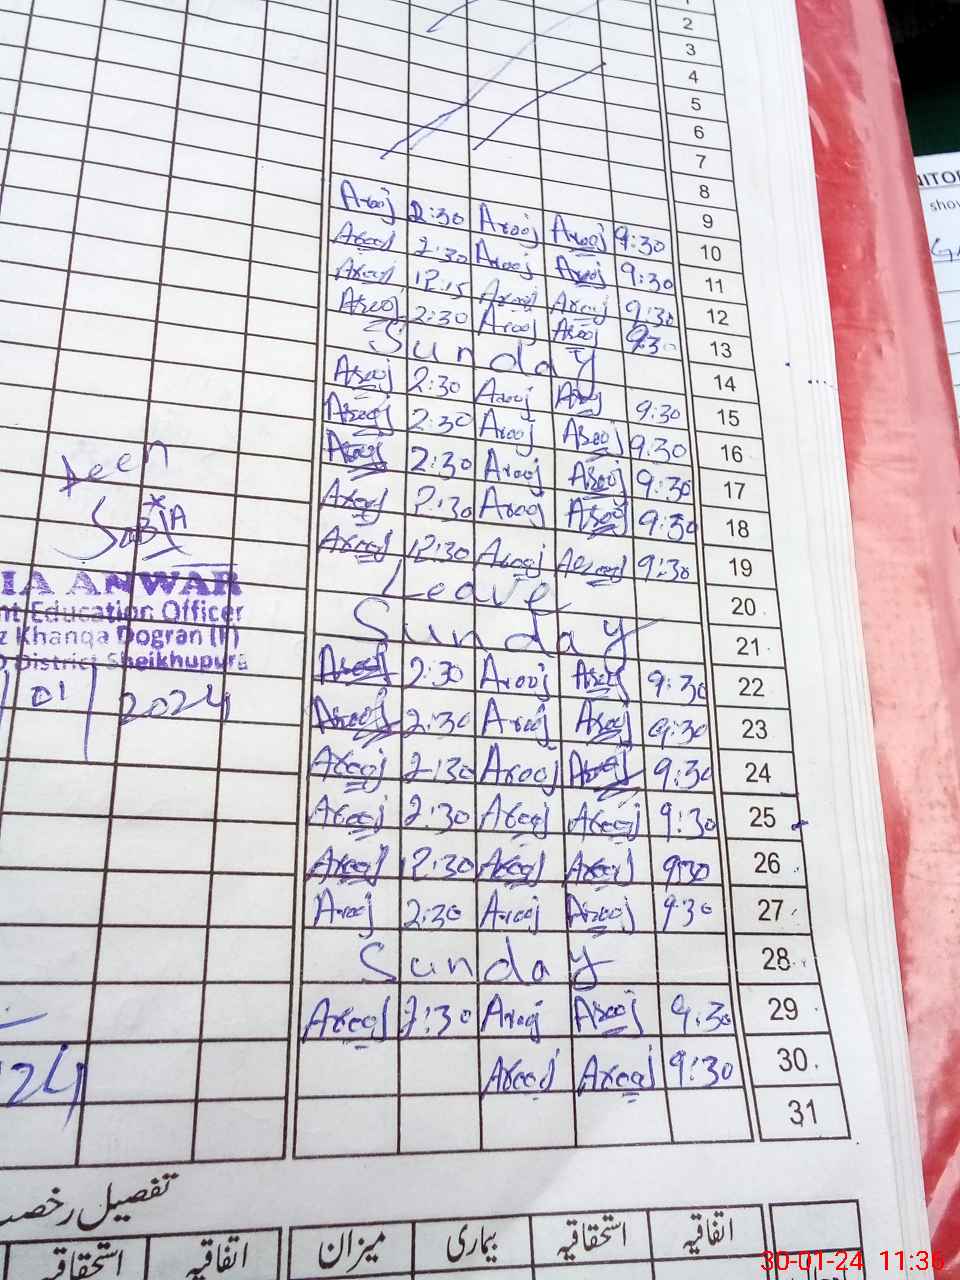 1
2
3
4
5
6
7
8
9
Arooj 2:30 Arooj Arooj 9:30 10
Arooj 2:30 Arooj Arooj 9:30 11
Arooj 12:15 Arooj Arooj 9:30 12
Arooj 2:30 Arooj Arooj 9:30 13
Sunday 14
Arooj 2:30 Arooj Arooj 9:30 15
Arooj 2:30 Arooj Arooj 9:30 16
Arooj 2:30 Arooj Arooj 9:30 17
Arooj 2:30 Arooj Arooj 9:30 18
Arooj 12:30 Arooj Arooj 9:30 19
Leave 20
Sunday 21
Arooj 2:30 Arooj Arooj 9:30 22
Arooj 2:30 Arooj Arooj 9:30 23
Arooj 2:30 Arooj Arooj 9:30 24
Arooj 2:30 Arooj Arooj 9:30 25
Arooj 12:30 Arooj Arooj 9:30 26
Arooj 2:30 Arooj Arooj 9:30 27
Sunday 28
Arooj 2:30 Arooj Arooj 9:30 29
Arooj Arooj 9:30 30
31
Seen
IA ANWAR
nt Education Officer
z Khanqa Dogran (F)
District Sheikhupura
01 2024
24
تفصیل رخصت
اتفاقیہ استحقاقیہ بیماری میزان اتفاقیہ استحقاقیہ
NITOR
shou
30-01-24 11:36